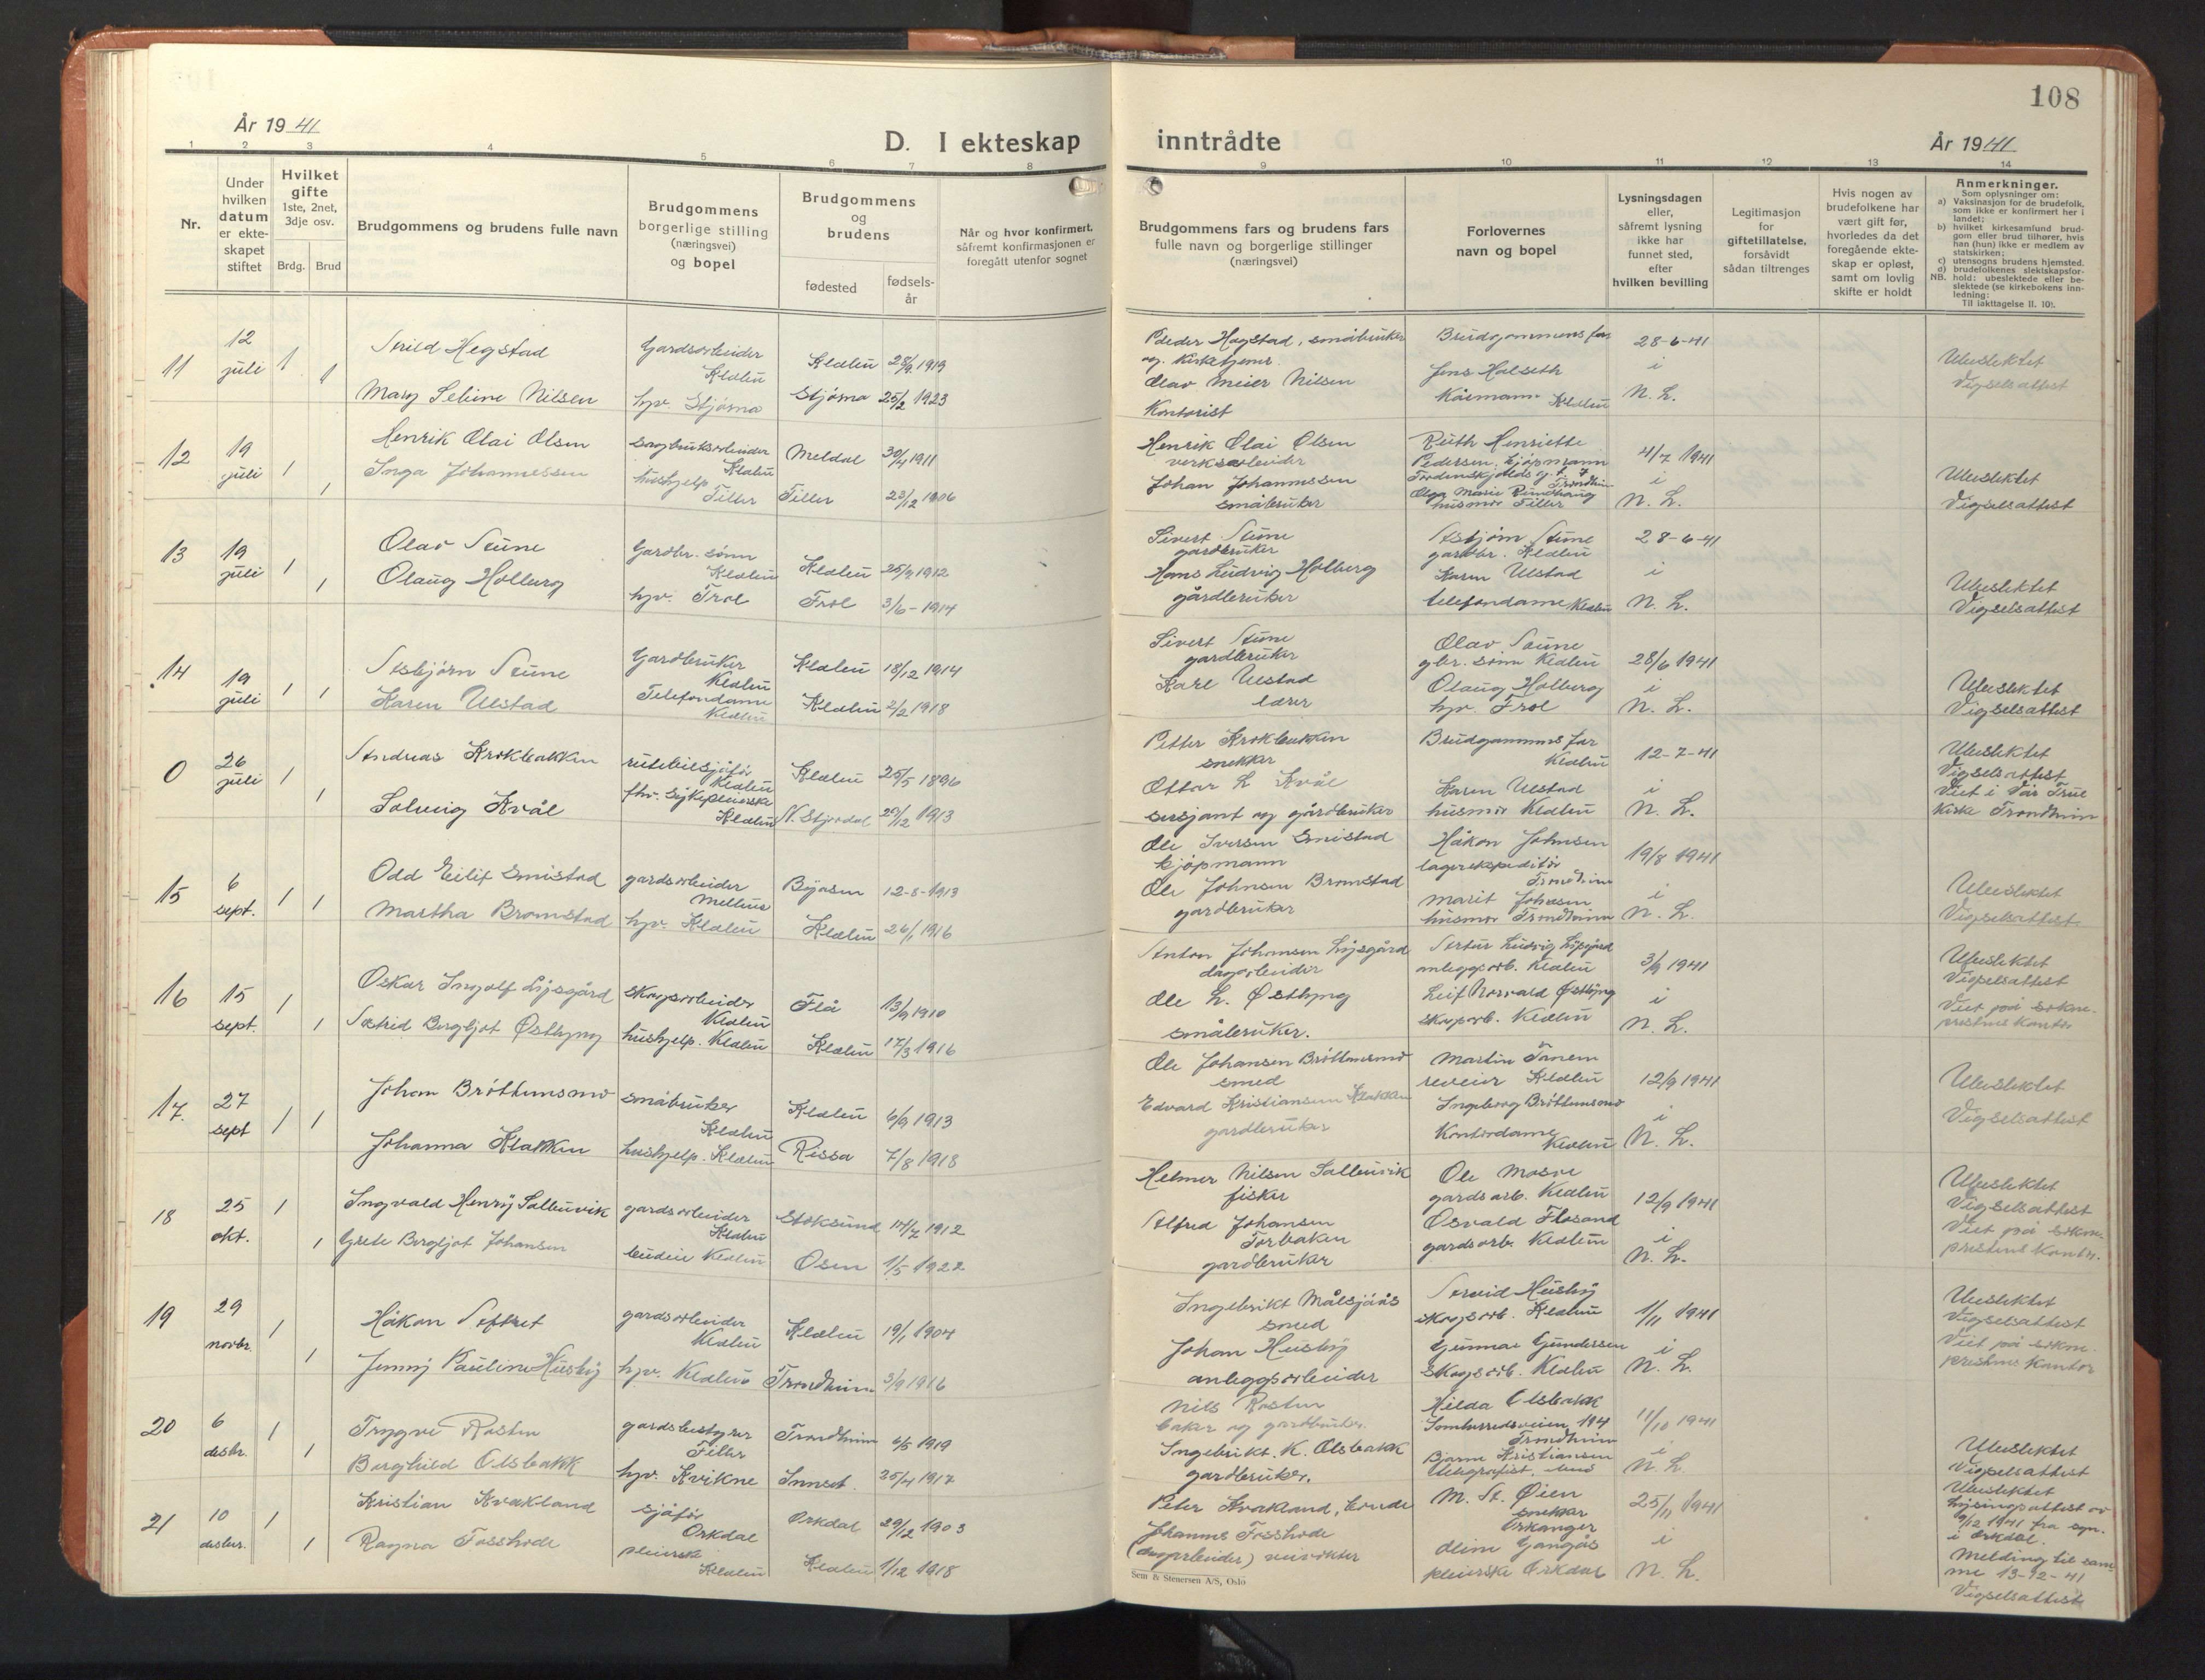 108
År 1941
D. I ekteskap inntrådte
År 1941
1 2 3 4 5 6 7 8 9 10 11 12 13 14
Nr.
Under hvilken datum er ekte-skapet stiftet
Hvilket gifte 1ste, 2net, 3dje osv.
Brdg. Brud
Brudgommens og brudens fulle navn
Brudgommens borgerlige stilling (næringsvei) og bopel
Brudgommens og brudens
fødested
fødsels-år
Når og hvor konfirmert, såfremt konfirmasjonen er foregått utenfor sognet
Brudgommens fars og brudens fars fulle navn og borgerlige stillinger (næringsvei)
Forlovernes navn og bopel
Lysningsdagen eller, såfremt lysning ikke har funnet sted, efter hvilken bevilling
Legitimasjon for giftetillatelse, forsåvidt sådan tiltrenges
Hvis nogen av brudefolkene har vært gift før, hvorledes da det foregående ekte-skap er opløst, samt om lovlig skifte er holdt
Anmerkninger.
Som oplysninger om:
a) Vaksinasjon for de brudefolk, som ikke er konfirmert her i landet;
b) hvilket kirkesamfund brud-gom eller brud tilhører, hvis han (hun) ikke er medlem av statskirken;
c) utensogns brudens hjemsted.
d) brudefolkenes slektskapsfor-hold: ubeslektede eller be-slektede (se kirkebokens inn-ledning:
NB. Til iakttagelse II. 10).
11 12 juli 1 1
Arild Hegstad Gardsarbeider Klæbu Klæbu 28/9 1919
Mary Seline Nilsen hjv. Stjørna Stjørna 25/2 1923
Peder Hagstad, småbruker og kirketjener.
Olav Meier Nilsen Kontorist
Brudgommens far
Jens Halseth Klæbu
28-6-41 i N. L.
Ubeslektet
Vigselsattest
12 19 juli 1 1
Henrik Olai Olsen sagbruksarbeider Klæbu Meldal 30/4 1911
Inga Johannessen hushjelp Tiller Tiller 23/12 1906
Henrik Olai Olsen verksarbeider
Johan Johannssen småbruker
Ruth Henriette Pedersen, kjøpmann Trondheim
Olga Marie Rundhaug husmor Tiller
4/7 1941 i N. L.
Ubeslektet
Vigselsattest
13 19 juli 1 1
Olav Stune Gardbr. sønn Klæbu Klæbu 25/9 1912
Olaug Holberg hjv. Frol Frol 3/6-1914
Sivert Stune gardbruker
Hans Ludvig Holberg gårdbruker
Asbjørn Stune gardbr. Klæbu
Karen Ulstad telefondame Klæbu
28-6-41 i N. L.
Ubeslektet
Vigselsattest
14 19 juli 1 1
Asbjørn Stune Gardbruker Klæbu Klæbu 18/12 1914
Karen Ulstad Telefondame Klæbu Klæbu 2/2 1918
Sivert Stune gardbruker
Karl Ulstad lærer
Olav Stune gbr. sønn Klæbu
Olaug Holberg hjv. Frol
28/6 1941 i N. L.
Ubeslektet
Vigselsattest
0 26 juli 1 1
Andreas Krokbakken rutebilsjåfør Klæbu Klæbu 25/5 1896
Solveig Kvål fhv. sykepleierske Klæbu N. Stjørdal 29/12 1913
Petter Krokbakken snekker
Ottar L Kvål sersjant og gårdbruker
Brudgommens far Klæbu
Karen Ulstad husmor Klæbu
12-7-41 i N. L.
Ubeslektet
Vigselsattest
Viet i Vår Frue Kirke Trondheim
15 6 sept. 1 1
Odd Eilif Smistad gardsarbeider Melhus Børsen 12-8-1913
Martha Bromstad hjv. Klæbu Klæbu 26/1 1916
Ole Iversen Smistad kjøpmann
Ole Johnsen Bromstad gardbruker
Håkon Johnsen lagerekspeditør Trondheim
Marit Johnsen husmor Trondheim
19/8 1941 i N. L.
Ubeslektet
Vigselsattest.
16 15 sept. 1 1
Oskar Ingolf Lysgård skogsarbeider Klæbu Flå 13/9 1910
Astrid Bergljot Østbyng hushjelp. Klæbu Klæbu 17/3 1916
Anton Johansen Lysgård dagarbeider
Ole L. Østbyng småbruker.
Artur Ludvig Lysgård anleggsarb. Klæbu
Leif Norvald Østbyng skogsarb. Klæbu
3/9 1941 i N. L.
Ubeslektet
Vigselsattest
Viet på sokne-prestens kontor
17. 27 sept 1 1
Johan Bröttemsmo småbruker Klæbu Klæbu 6/9 1913
Johanna Klakken hushjelp. Klæbu Rissa 7/8 1918
Ole Johansen Bröttemsmo smed
Edvard Kristiansen Klakken gardbruker
Martin Tanem Klæbu
Ingeborg Bröttemsmo Kontordame Klæbu
12/9 1941 i N. L.
Ubeslektet
Vigselsattest
18 25 okt. 1 1
Ingvald Henry Sallbuvik gardsarbeider Klæbu Stoksund 17/7 1912
Grete Bergljot Johansen budeie Klæbu Osen 1/5 1922
Helmer Nilsen Sallbuvik fisker
Alfred Johansen Torbaken gardbruker
Ole Mosve gardsarb. Klæbu
Osvald Flosand gardsarb. Klæbu
12/9 1941 i N. L.
Ubeslektet
Vigselsattest
Viet på sokne-prestens kontor.
19 29 novbr. 1 1
Håkon Aftret gardsarbeider Klæbu Klæbu 19/1 1904
Jenny Pauline Husby hjv. Klæbu Trondheim 3/9 1916
Ingebrikt Målsjøås smed
Johan Husby anleggsarbeider
Arvid Husby skogsarb. Klæbu
Gunnar Gundersen skogsarb. Klæbu
1/11 1941 i N. L.
Ubeslektet
Vigselsattest
Viet på sokne-prestens kontor
20 6 desbr. 1 1
Trygve Rosten gardsbestyrer Tiller Trondheim 6/5 1919
Berghild Olsbakk hjv. Kvikne Innset 25/4 1917
Nils Rosten baker og gardbruker.
Ingebrikt. K. Olsbakk gardbruker.
Hilda Olsbakk 104 Trondheim
Bjarne Kristiansen telegrafist
11/10 1941 i N. L.
Ubeslektet
Vigselsattest
21 10 desbr. 1 1
Kristian Kvakland sjåfør Orkdal Orkdal 29/12 1903
Ragna Fosshode pleierske Klæbu Klæbu 1/12 1918
Peter Kvakland, bonde
Johannes Fosshode (dagarbeider)
M. A. Øien snekker Orkanger
pleierske Orkdal
25/11 1941 i N. L.
Ubeslektet
Lysingsattest av 9/12 1941 fra spr. i Orkdal.
Melding til samme 13-12-41
Vigselsattest
Sem & Stenersen A/S, Oslo